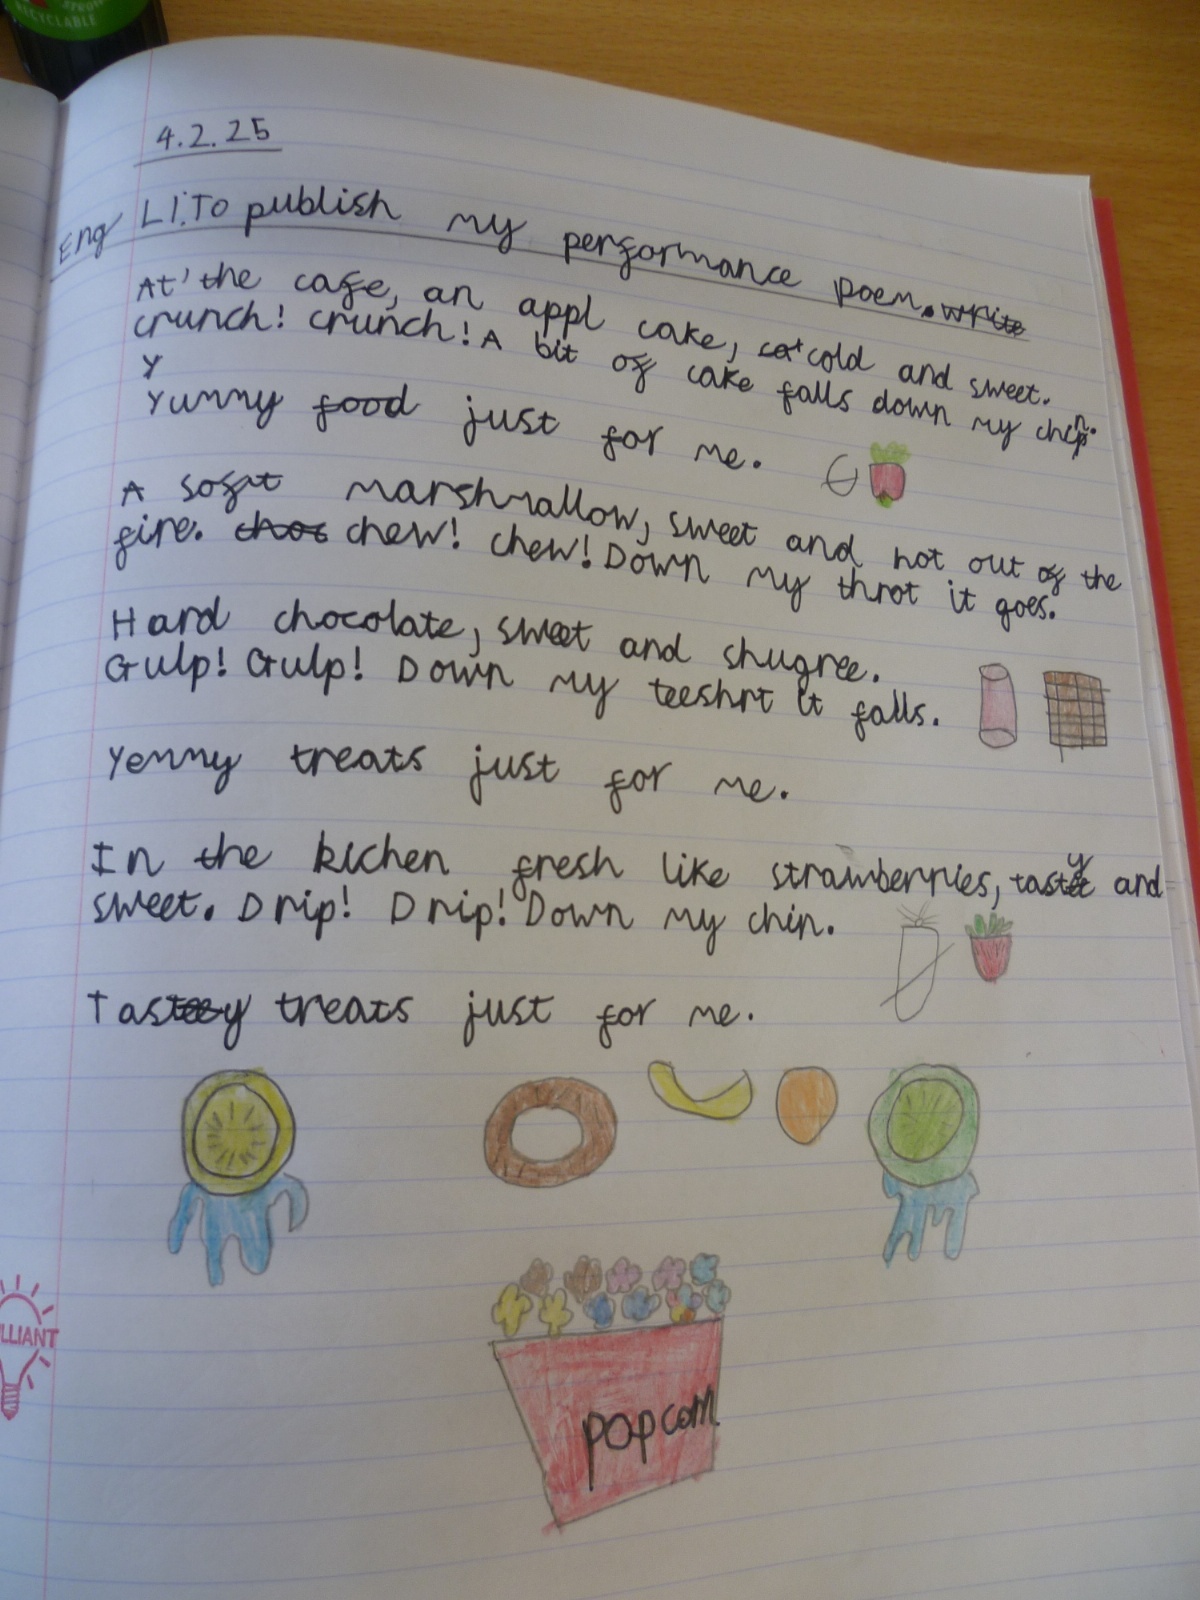 RECYCLABLE
4.2.25
Eng L.I. To publish my performance poem. write
At the cafe, an appl cake, cold and sweet.
crunch! crunch! A bit of cake falls down my chin.
y
Yummy food just for me.
A sofft marshmallow, sweet and hot out of the
fire. chew! chew! Down my throt it goes.
Hard chocolate, sweet and shugree.
Gulp! Gulp! Down my teeshrt it falls.
Yemmy treats just for me.
In the kichen fresh like strawberries, tasty and
sweet. Drip! Drip! Down my chin.
Tasteey treats just for me.
LLIANT
popcorn